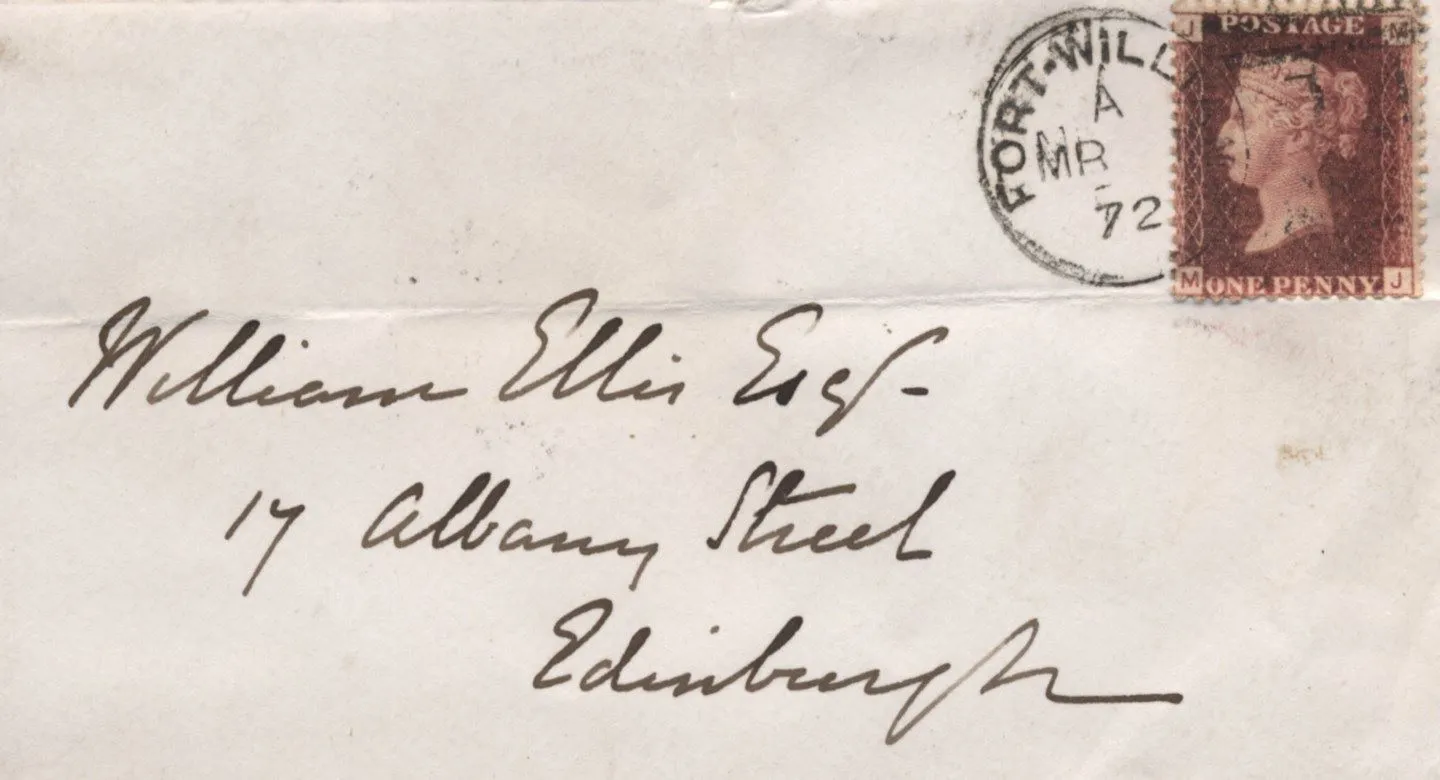 J POSTAGE M
FORT-WILL
A
MR
72
M ONE PENNY J
William Ellis Esqr
17 Albany Street
Edinburgh